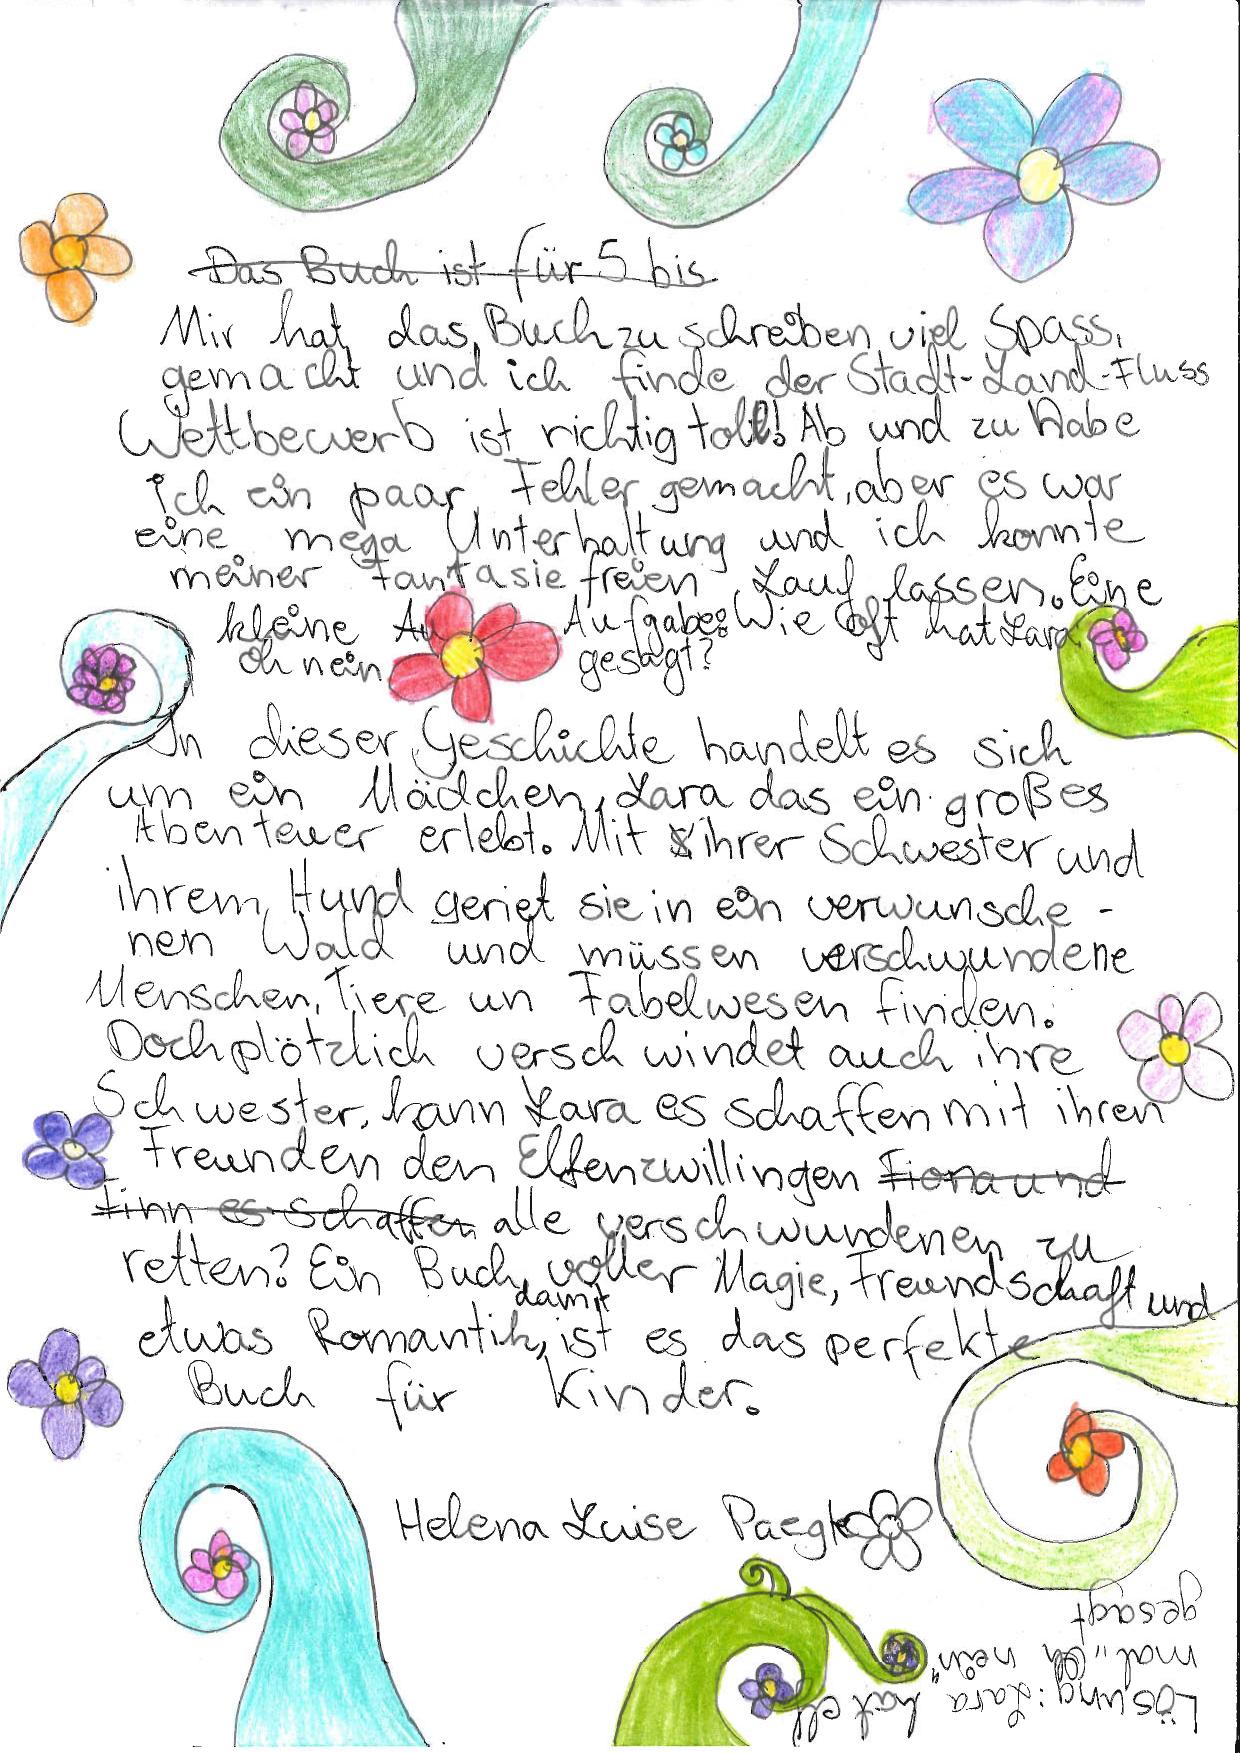 Das Buch ist für 5 bis
Mir hat das Buch zu schreiben viel Spass
gemacht und ich finde der Stadt-Land-Fluss
Wettbewerb ist richtig toll! Ab und zu habe
ich ein paar Fehler gemacht, aber es war
eine mega Unterhaltung und ich konnte
meiner Fantasie freien Lauf lassen. Eine
kleine Au Aufgabe: Wie oft hat Lara
oh nein gesagt?
In dieser Geschichte handelt es sich
um ein Mädchen, Lara das ein großes
Abenteuer erlebt. Mit ihrer Schwester und
ihrem Hund geriet sie in ein verwunsche-
nen Wald und müssen verschwundene
Menschen, Tiere un Fabelwesen finden.
Doch plötzlich verschwindet auch ihre
Schwester, kann Lara es schaffen mit ihren
Freunden den Elfenzwillingen Fiona und
Finn es schaffen alle verschwundenen zu
retten? Ein Buch voller Magie, Freundschaft und
etwas Romantik, damit ist es das perfekte
Buch für Kinder.
Helena Luise Paegle
Lösung: Lara hat elf
mal „Oh nein"
gesagt